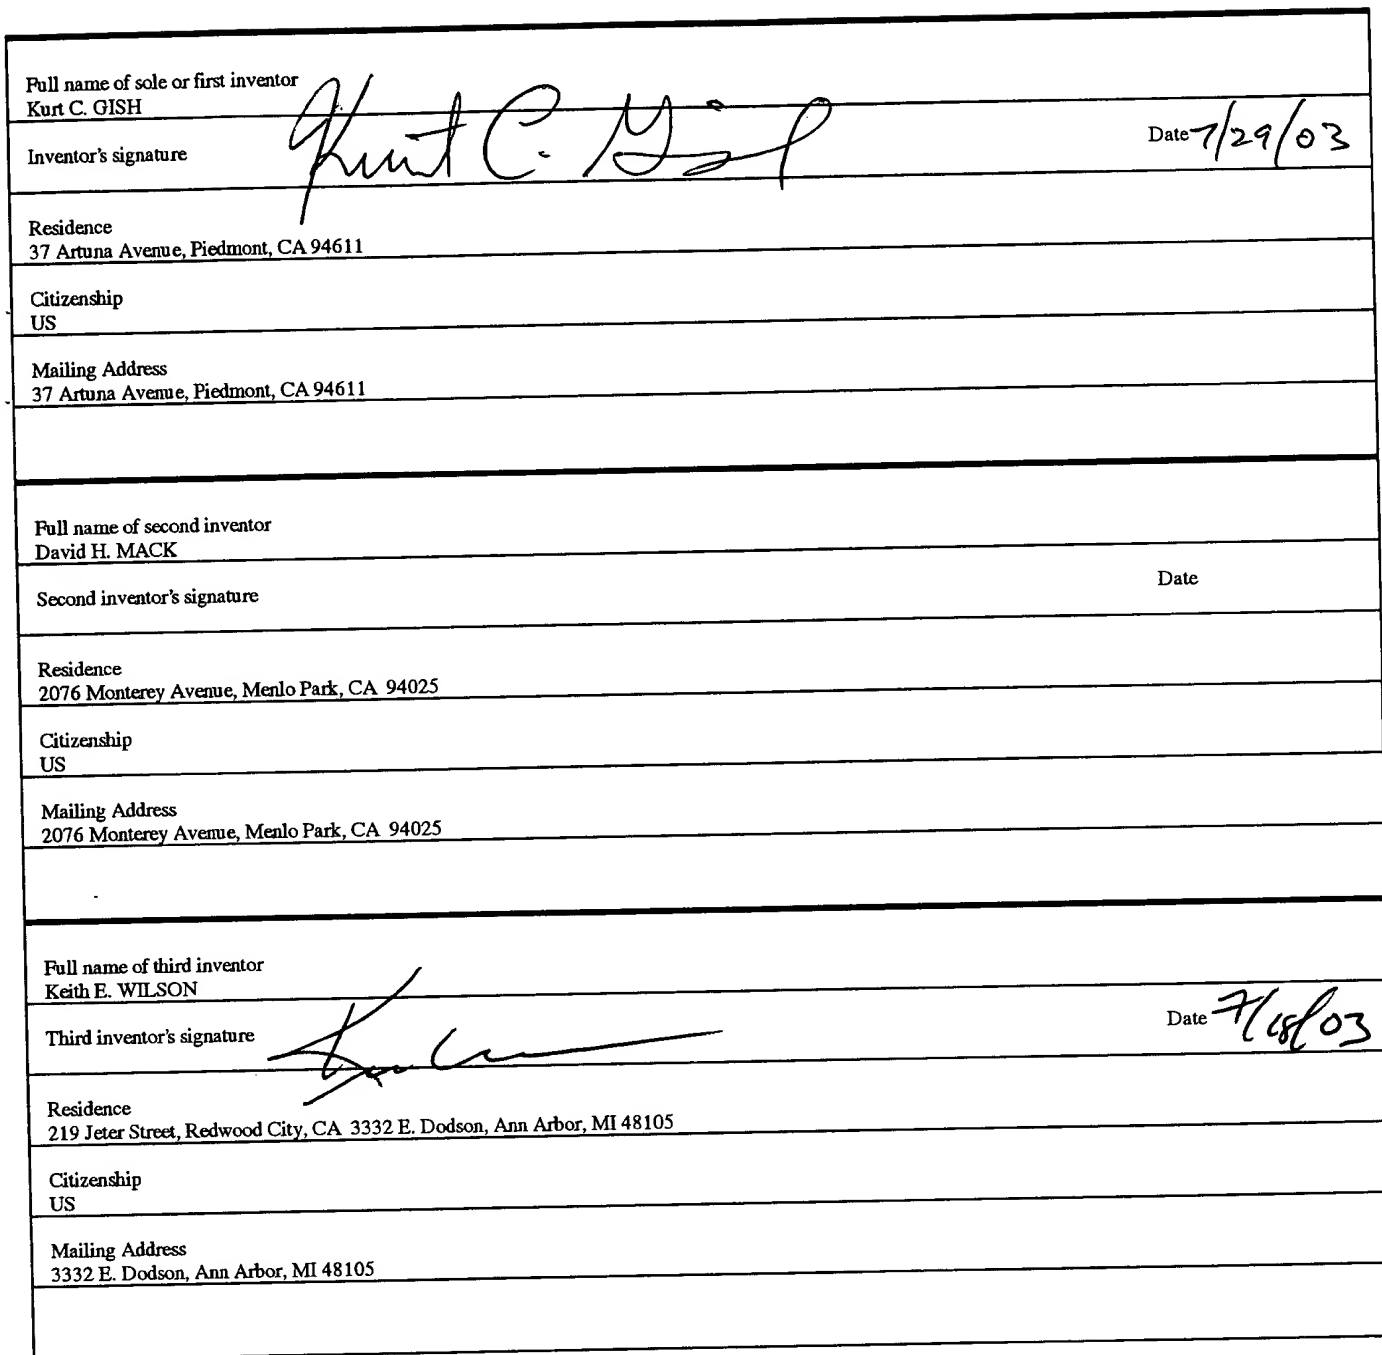 Full name of sole or first inventor
Kurt C. GISH
Inventor's signature Kurt C. Gish Date 7/29/03
Residence
37 Artuna Avenue, Piedmont, CA 94611
Citizenship
US
Mailing Address
37 Artuna Avenue, Piedmont, CA 94611
Full name of second inventor
David H. MACK
Second inventor's signature Date
Residence
2076 Monterey Avenue, Menlo Park, CA 94025
Citizenship
US
Mailing Address
2076 Monterey Avenue, Menlo Park, CA 94025
Full name of third inventor
Keith E. WILSON
Third inventor's signature Date 7/18/03
Residence
219 Jeter Street, Redwood City, CA 3332 E. Dodson, Ann Arbor, MI 48105
Citizenship
US
Mailing Address
3332 E. Dodson, Ann Arbor, MI 48105